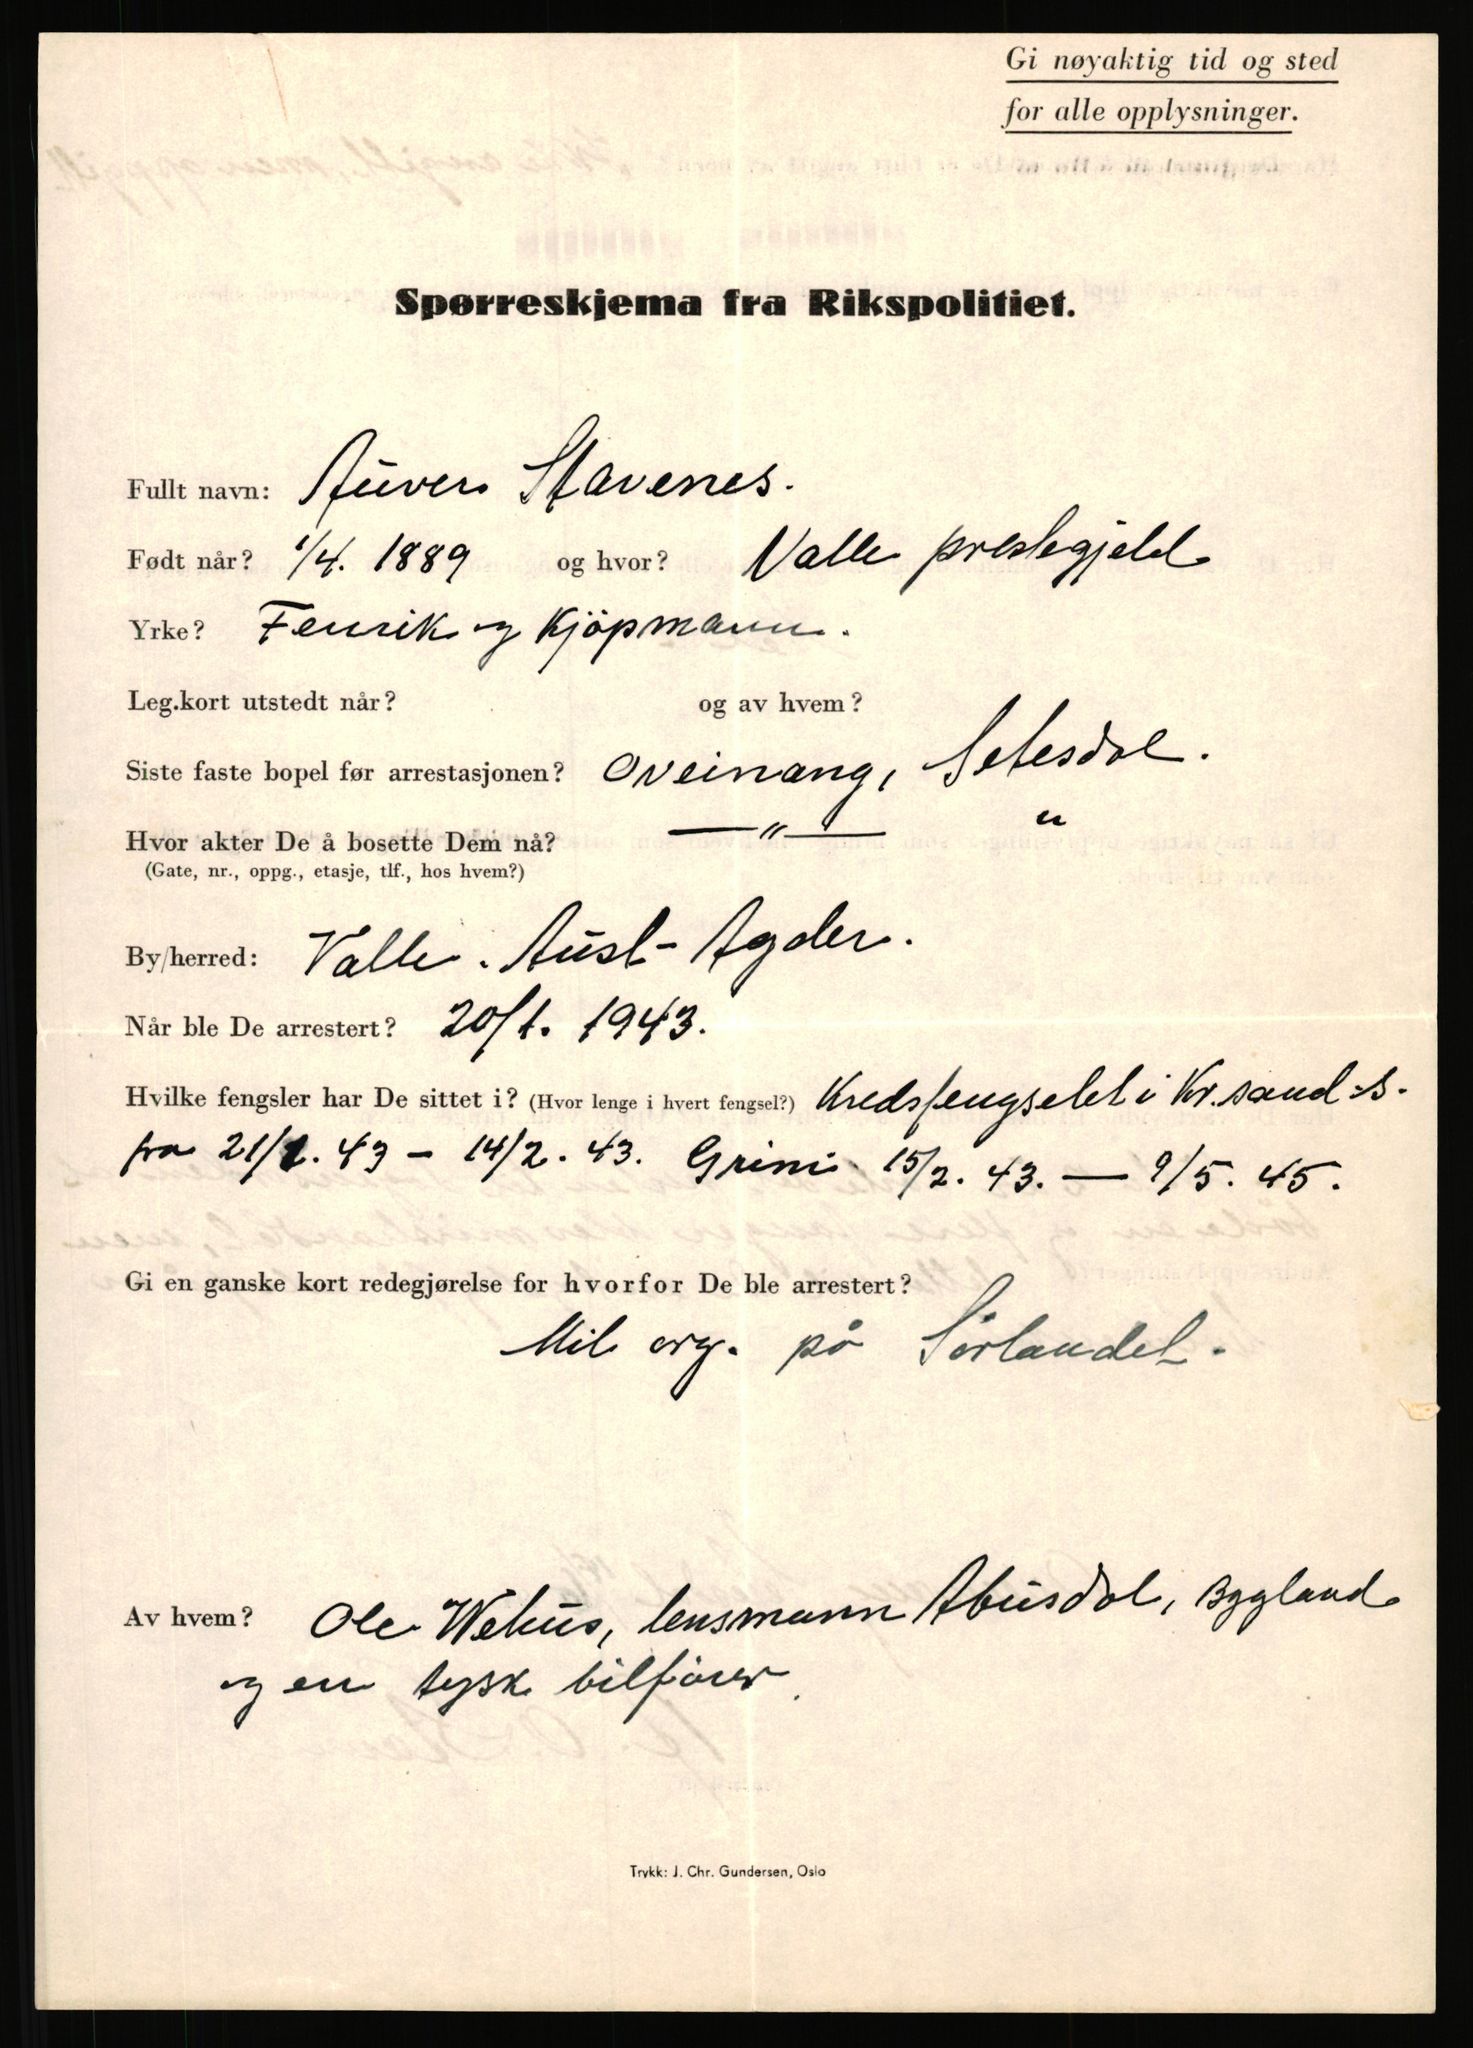 Gi nøyaktig tid og sted
for alle opplysninger.
Spørreskjema fra Rikspolitiet.
Fullt navn: Auver Stavenes.
Født når? 1/4. 1889 og hvor? Valle prestegjeld
Yrke? Fenrik og Kjöpmann.
Leg.kort utstedt når? og av hvem?
Siste faste bopel før arrestasjonen? Oveinang, Setesdal.
Hvor akter De å bosette Dem nå? —„— "
(Gate, nr., oppg., etasje, tlf., hos hvem?)
By/herred: Valle. Aust-Agder.
Når ble De arrestert? 20/1. 1943.
Hvilke fengsler har De sittet i? (Hvor lenge i hvert fengsel?) Kredsfengselet i Kr.sand S.
fra 21/1. 43 – 14/2. 43. Grini 15/2. 43. — 9/5. 45.
Gi en ganske kort redegjørelse for hvorfor De ble arrestert?
Mil org. på Sörlandet.
Av hvem? Ole Wehus, lensmann Abusdal, Bygland
og en tysk bilförer.
Trykk: J. Chr. Gundersen, Oslo